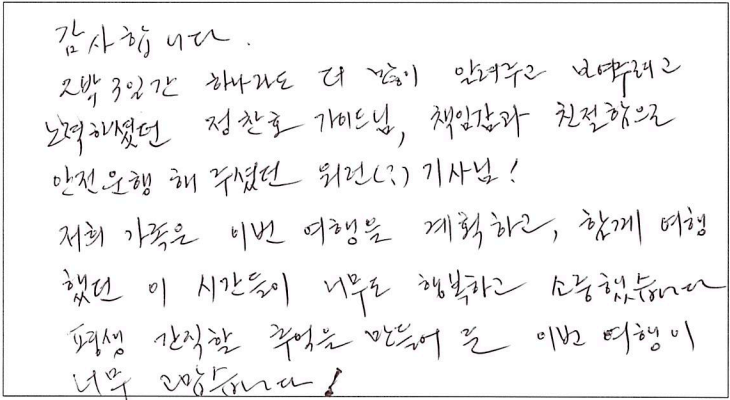 감사합니다.
2박 3일간 하나라도 더 많이 알려주고 보여주려고
노력하셨던 정찬호 가이드님, 책임감과 친절함으로
안전운행 해 주셨던 위런(?) 기사님!
저희 가족은 이번 여행을 계획하고, 함께 여행
했던 이 시간들이 너무도 행복하고 소중했습니다
평생 간직할 추억을 만들어 준 이번 여행이
너무 고맙습니다!